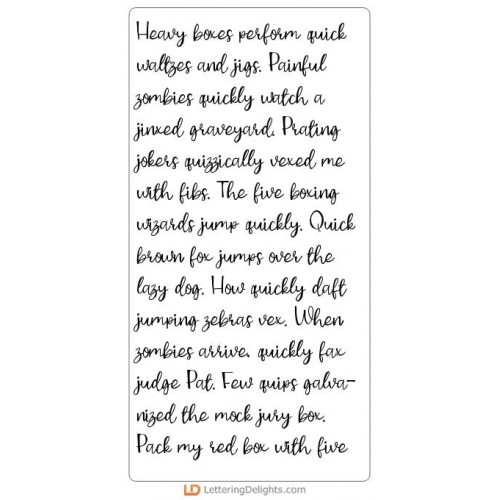 Heavy boxes perform quick
waltzes and jigs. Painful
zombies quickly watch a
jinxed graveyard. Prating
jokers quizzically vexed me
with fibs. The five boxing
wizards jump quickly. Quick
brown fox jumps over the
lazy dog. How quickly daft
jumping zebras vex. When
zombies arrive, quickly fax
judge Pat. Few quips galva-
nized the mock jury box.
Pack my red box with five
LD LetteringDelights.com